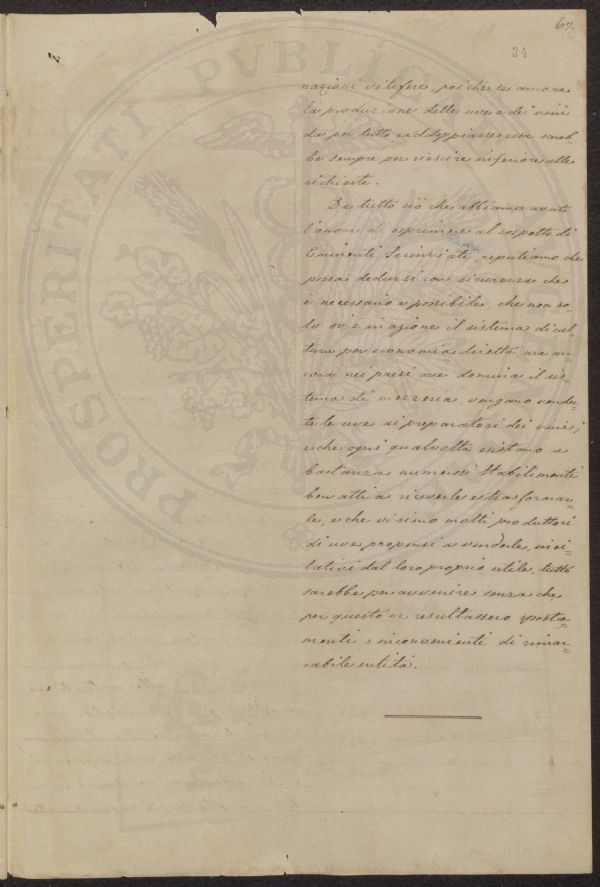 67.
34
nazioni vitifere, poichè se ancora
la produzione delle uve e dei vini
da per tutto raddoppiasse essa sareb=
be sempre per riescire inferiore alle
richieste.
Da tutto ciò che abbiamo avuto
l'onore di esprimere al cospetto di
Eminenti Scienziati, reputiamo che
possa dedursi con sicurezza che
è necessario e possibile che non so=
lo ov'è in azione il sistema di cul=
tura per economia diretta ma an=
cora nei paesi ove domina il sis=
tema di mezzeria, vengano vendu=
te le uve ai preparatori dei vini;
e che ogni qualvolta esistano a
bastanza numerosi Stabilimenti
ben atti a riceverle e trasformar=
le, e che vi sieno molti produttori
di uve propensi a venderle, inci=
tativi dal loro proprio utile, tutto
sarebbe per avvenire senza che
per questo ne resultassero sposta=
menti o inconvenienti di rimar=
cabile entità.
PROSPERITATI PUBLIC